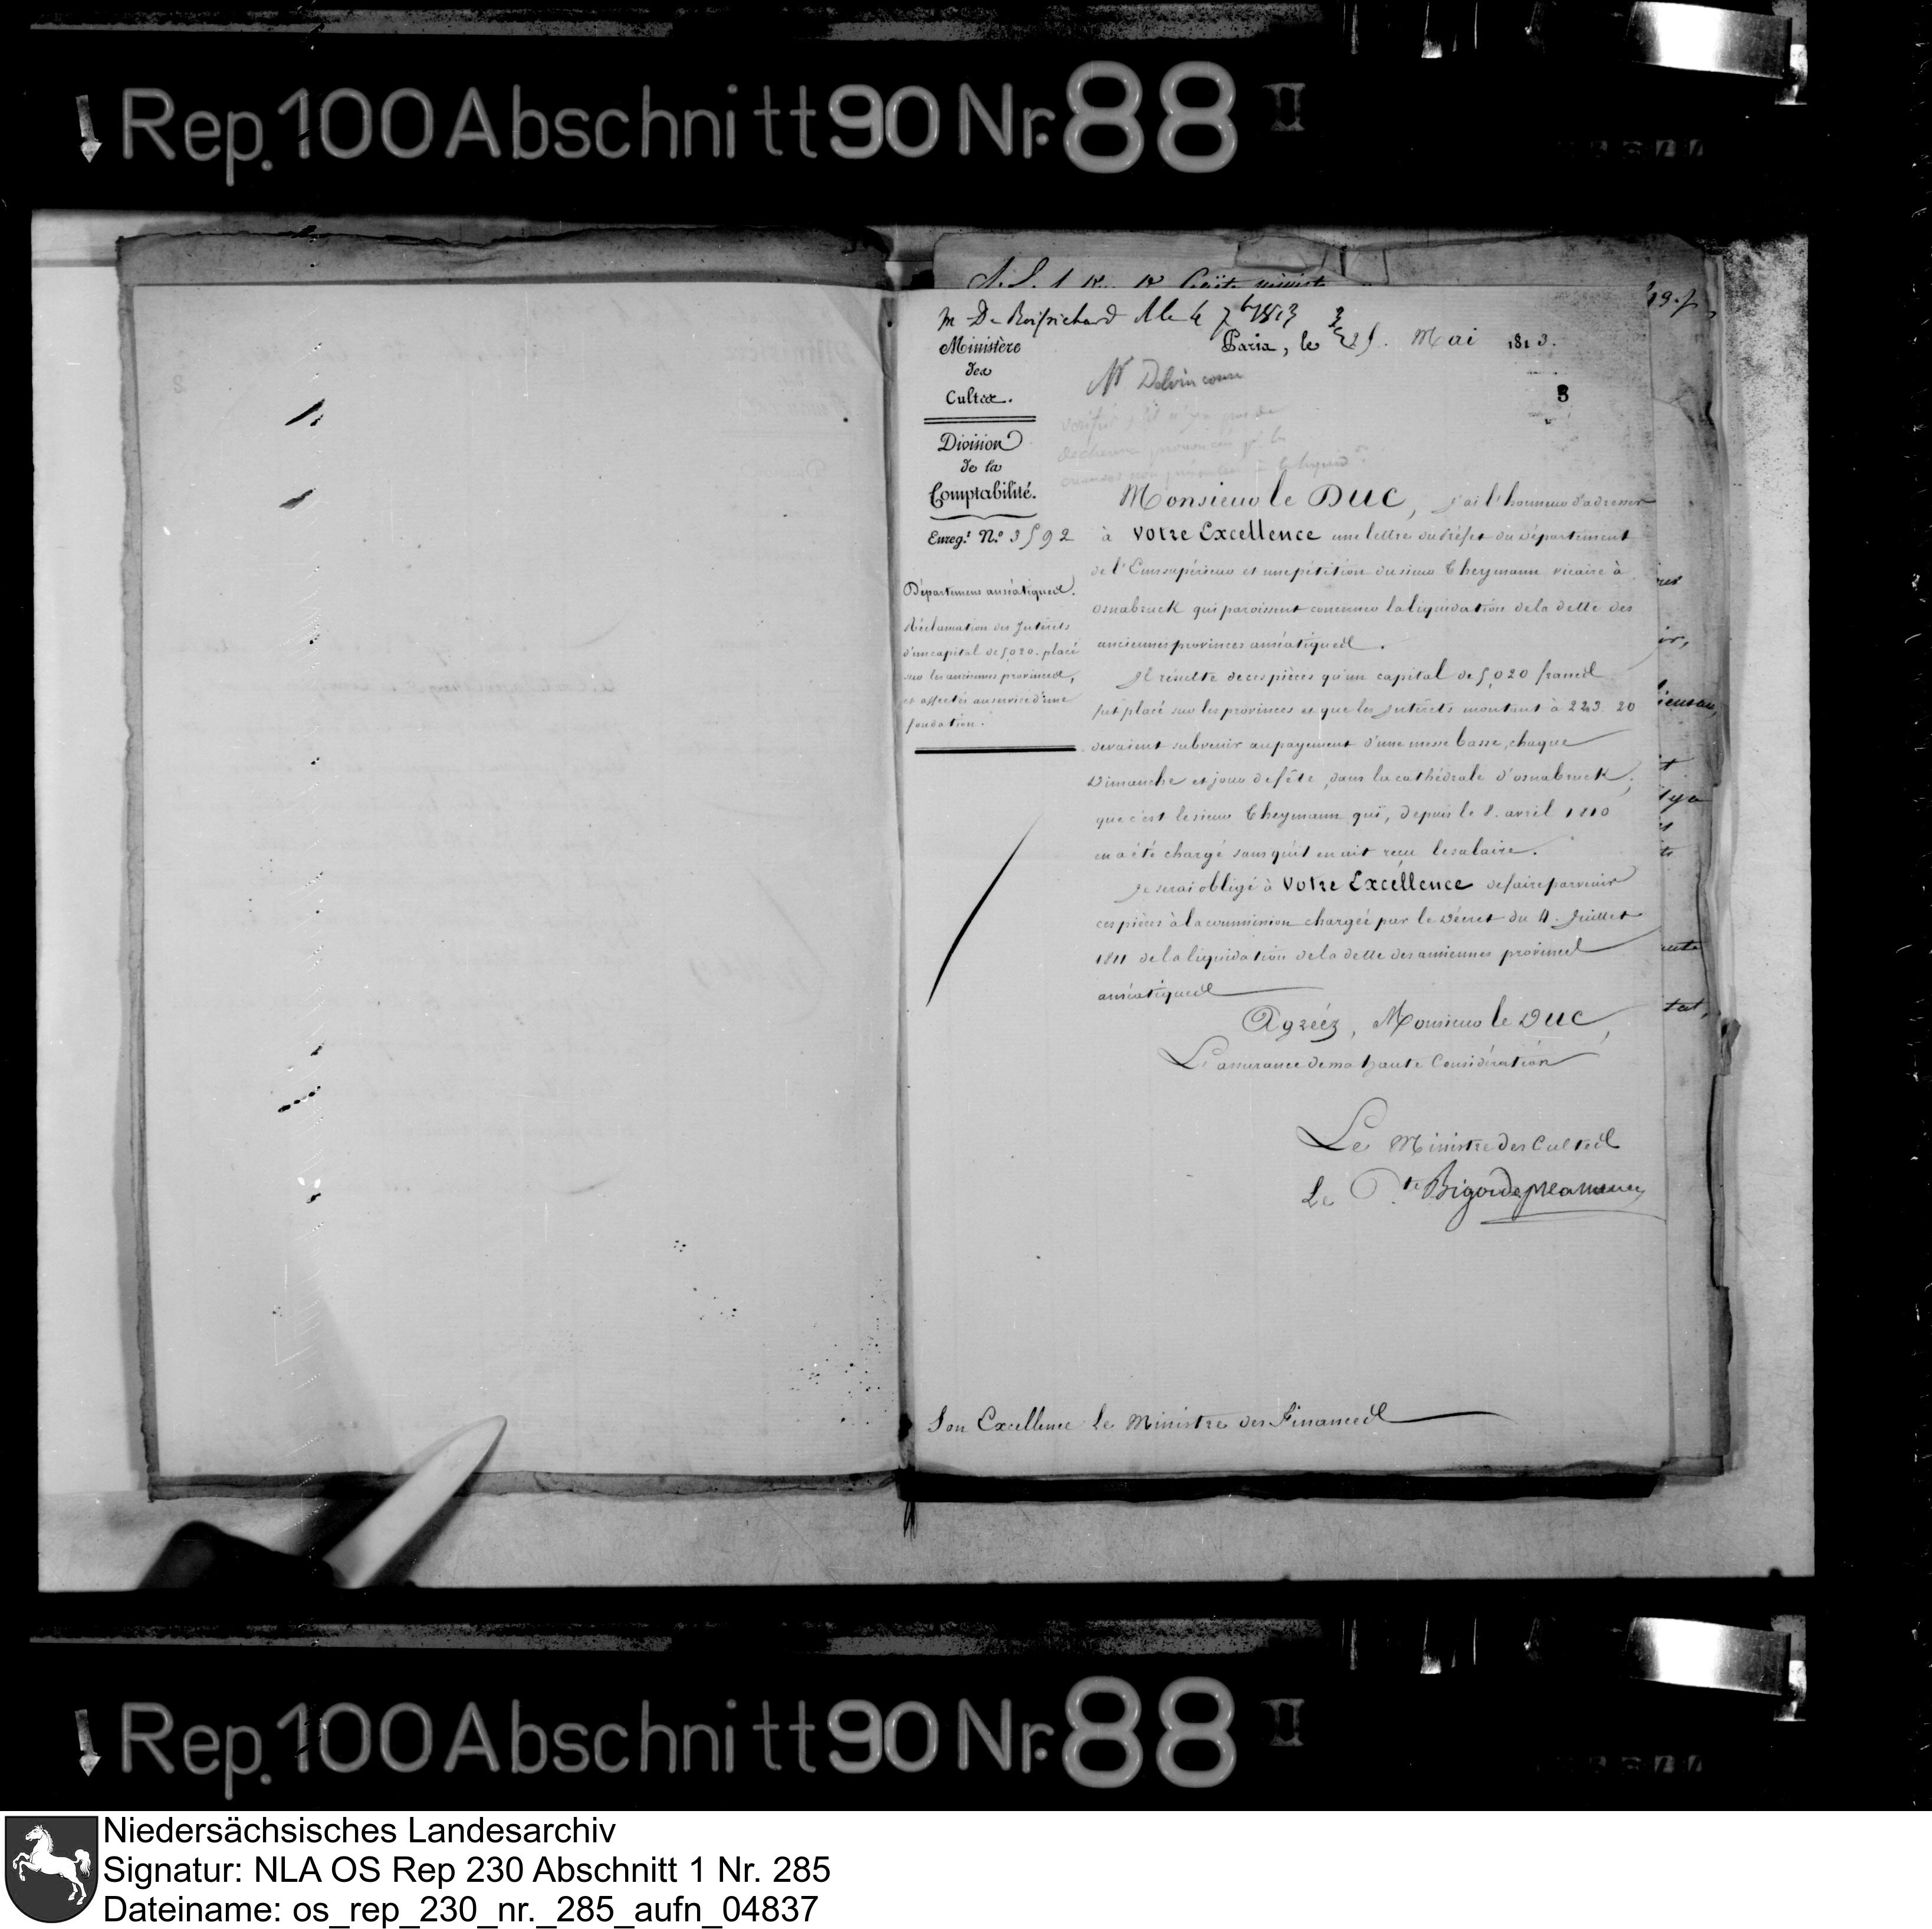 Rep. 100 Abschnitt 90 Nr. 88 II
M De Boisrichard
Paris, le 25. Mai 1813.
Ministère
des
Cultes.
Mr Delvincourt
3
Division
de la
Comptabilité.
Enreg.t N.o 3592
Départemens anséatiques.
Réclamation des Intérêts
d'un capital de 5,020. placé
sur les anciennes provinces,
et affectés au service d'une
fondation.
Monsieur le Duc, j'ai l'honneur d'adresser
à Votre Excellence une lettre du Préfet du Département
de l'Ems supérieur et une pétition du sieur Theymann vicaire à
osnabruck qui paroissent concerner la liquidation de la dette des
anciennes provinces anséatiques.
Il résulte de ces pièces qu'un capital de 5,020 francs
fut placé sur les provinces et que les Intérêts montant à 223. 20
devaient subvenir au payement d'une messe basse, chaque
Dimanche et jour de fête, dans la cathédrale d'osnabruck;
que c'est le sieur Theymann qui, depuis le 8. avril 1810
en a été chargé sans qu'il en ait reçu le salaire.
Je serai obligé à Votre Excellence de faire parvenir
ces pièces à la commission chargée par le Décret du 4. Juillet
1811 de la liquidation de la dette des anciennes provinces
anséatiques
Agréez, Monsieur le Duc,
L'assurance de ma haute Considération
Le Ministre des Cultes
Le C.te Bigot de Préameneu
Son Excellence Le Ministre des Finances
Rep. 100 Abschnitt 90 Nr. 88 II
Niedersächsisches Landesarchiv
Signatur: NLA OS Rep 230 Abschnitt 1 Nr. 285
Dateiname: os_rep_230_nr._285_aufn_04837